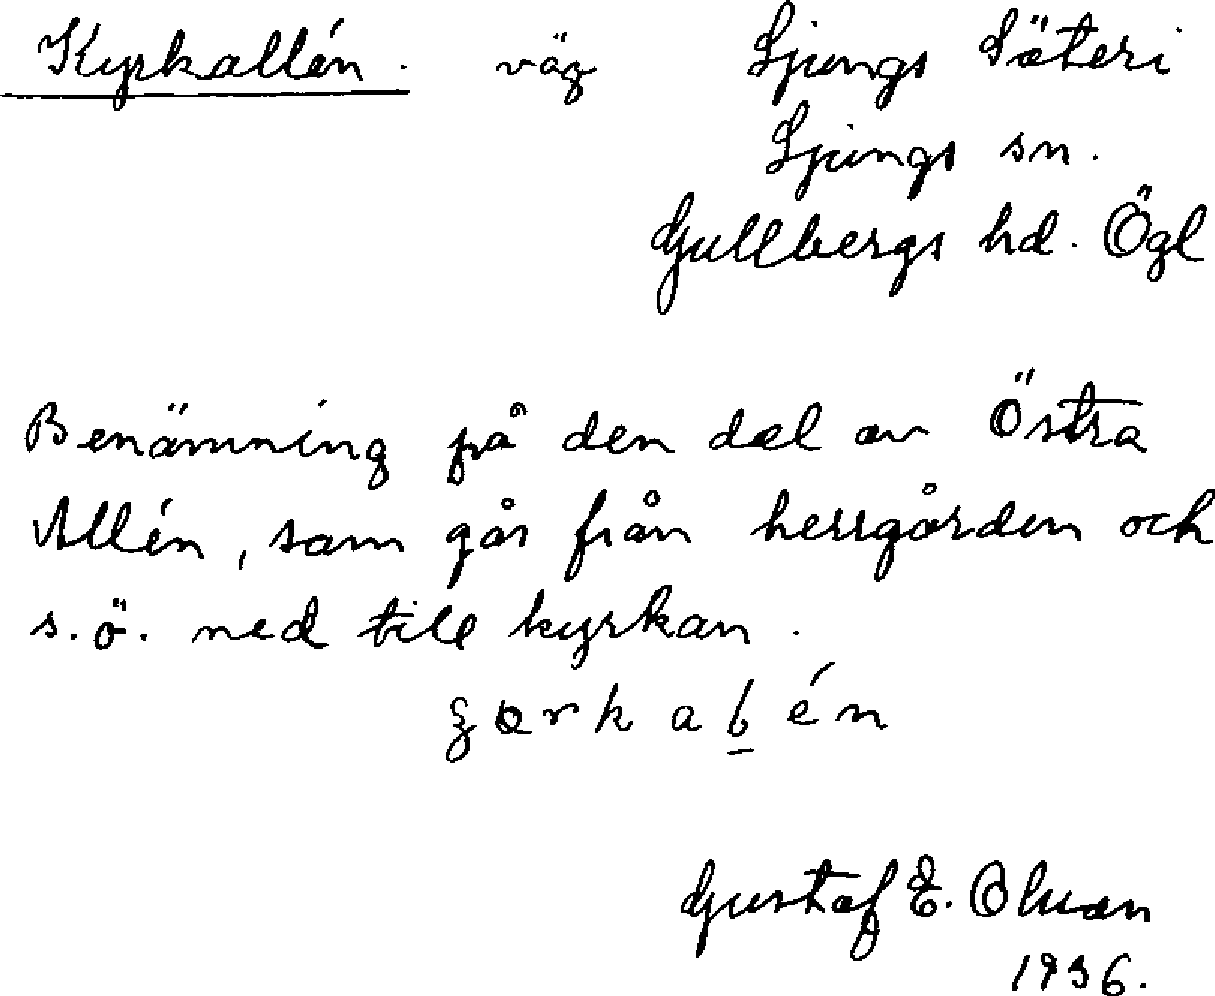 Kyrkallén. väg Ljungs Säteri
Ljungs sn.
Gullbergs hd. Ögl
Benämning på den del av Östra
Allén, som går från herrgården och
s.ö. ned till kyrkan.
Gustaf E. Olsson
1936.